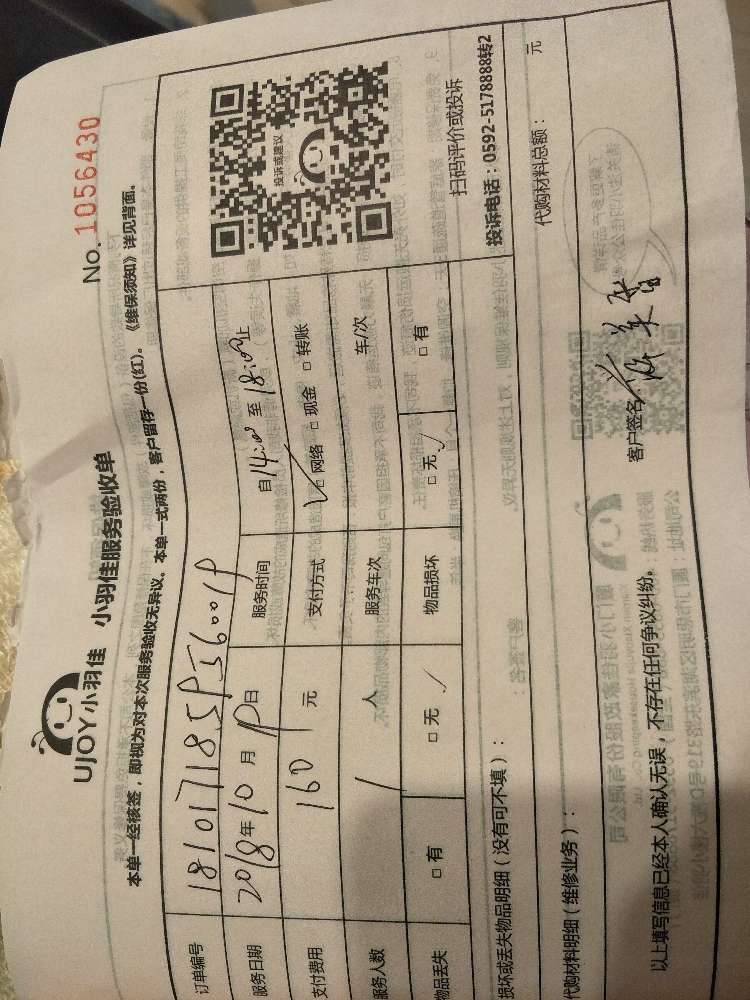 UJOY小羽佳 小羽佳服务验收单
No. 1056430
本单一经核签，即视为对本次服务验收无异议。本单一式两份，客户留存一份(红)。《维保须知》详见背面。
订单编号
服务日期 2018年10月19日 服务时间 自14:00至18:00止
支付费用 160 元 支付方式 □网络 □现金 □转账
服务人数 1 人 服务车次 车/次
物品丢失 □有 □无 物品损坏 □无 □有
投诉或建议
扫码评价或投诉
投诉电话：0592-5178888转2
损坏或丢失物品明细（没有可不填）：
代购材料明细（维修业务）： 代购材料总额： 元
以上填写信息已经本人确认无误，不存在任何争议纠纷。 客户签名：